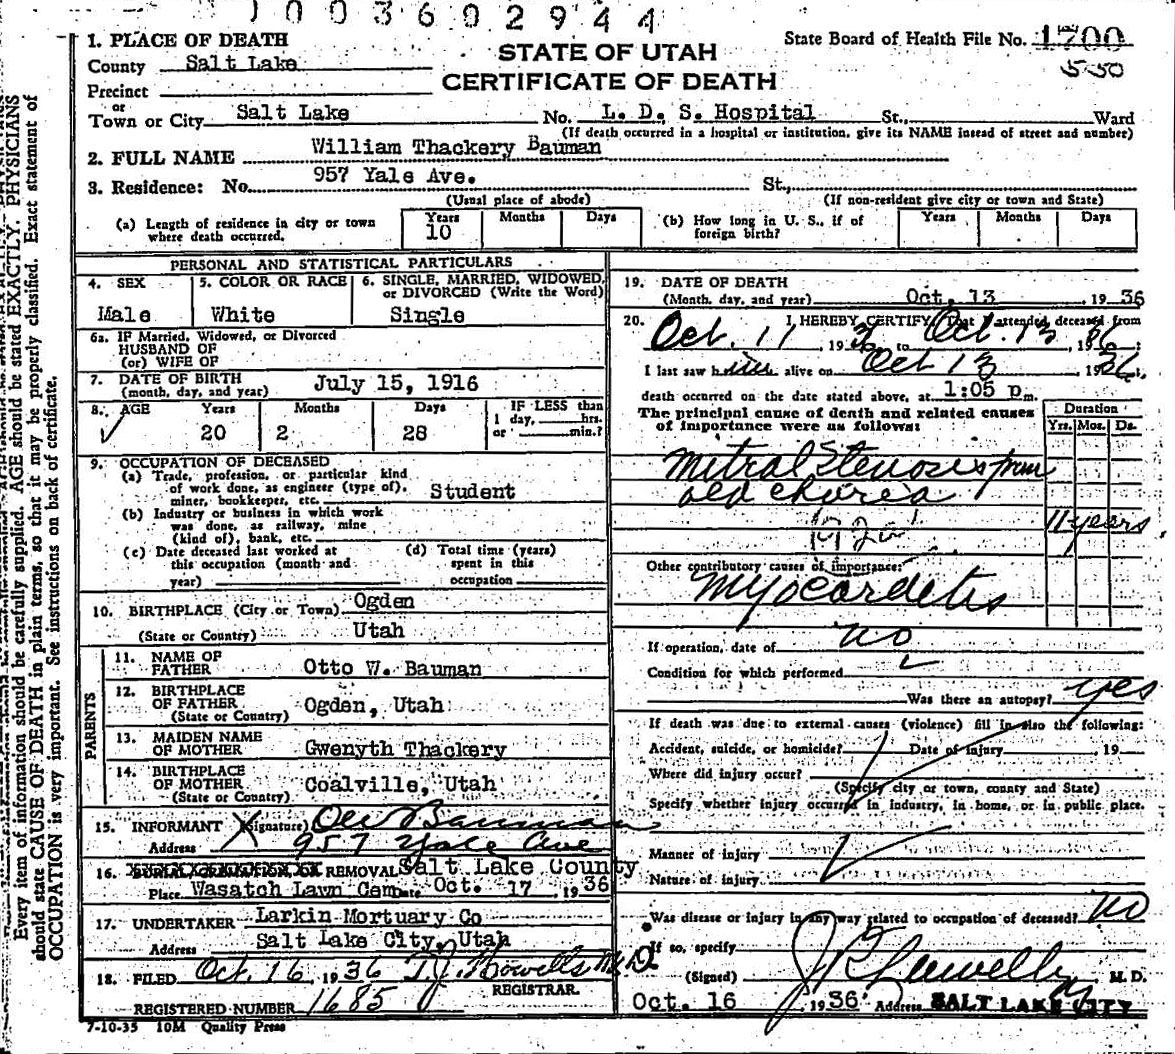 1003602944
1. PLACE OF DEATH
STATE OF UTAH
CERTIFICATE OF DEATH
State Board of Health File No. 1700
5-50
County Salt Lake
Precinct
or
Town or City Salt Lake No. L. D. S. Hospital St., Ward
(If death occurred in a hospital or institution, give its NAME insead of street and number)
2. FULL NAME William Thackery Bauman
3. Residence: No. 957 Yale Ave. St.,
(Usual place of abode) (If non-resident give city or town and State)
(a) Length of residence in city or town where death occurred. Years 10 Months Days
(b) How long in U. S., if of foreign birth? Years Months Days
PERSONAL AND STATISTICAL PARTICULARS
4. SEX 5. COLOR OR RACE 6. SINGLE, MARRIED, WIDOWED, or DIVORCED (Write the Word)
Male White Single
6a. IF Married, Widowed, or Divorced
HUSBAND OF
(or) WIFE OF
7. DATE OF BIRTH
(month, day, and year) July 15, 1916
8. AGE Years Months Days IF LESS than
1 day, hrs.
20 2 28 or min.?
9. OCCUPATION OF DECEASED
(a) Trade, profession, or particular kind
of work done, as engineer (type of),
miner, bookkeeper, etc. Student
(b) Industry or business in which work
was done, as railway, mine
(kind of), bank, etc.
(c) Date deceased last worked at
this occupation (month and
year)
(d) Total time (years)
spent in this
occupation
10. BIRTHPLACE (City or Town) Ogden
(State or Country) Utah
PARENTS
11. NAME OF
FATHER Otto W. Bauman
12. BIRTHPLACE
OF FATHER Ogden, Utah
(State or Country)
13. MAIDEN NAME
OF MOTHER Gwenyth Thackery
14. BIRTHPLACE
OF MOTHER Coalville, Utah
(State or Country)
15. INFORMANT X (Signature) Bauman
Address 957 Yale Ave
16. BURIAL, CREMATION, OR REMOVAL Salt Lake County
Place Wasatch Lawn Cem Date Oct. 17, 1936
17. UNDERTAKER Larkin Mortuary Co
Address Salt Lake City, Utah
18. FILED Oct. 16, 1936 T. J. Howells M.D.
REGISTRAR.
REGISTERED NUMBER 1685
7-10-35 10M Quality Press
19. DATE OF DEATH
(Month, day, and year) Oct. 13, 1936
20. I HEREBY CERTIFY, That I attended deceased from
Oct. 11, 1936 to Oct. 13, 1936;
I last saw him alive on Oct 13, 1936;
death occurred on the date stated above, at 1:05 p m.
The principal cause of death and related causes
of importance were as follows:
Duration
Yrs. Mos. Ds.
Mitral Stenosis from
old chorea
11 years
Other contributory causes of importance:
Myocardetis
If operation, date of no
Condition for which performed
Was there an autopsy? yes
If death was due to external causes (violence) fill in also the following:
Accident, suicide, or homicide? Date of injury , 19
Where did injury occur?
(Specify city or town, county and State)
Specify whether injury occurred in industry, in home, or in public place.
Manner of injury
Nature of injury
Was disease or injury in any way related to occupation of deceased? No
If so, specify
(Signed) M. D.
Oct. 16, 1936 Address SALT LAKE CITY
Every item of information should be carefully supplied. AGE should be stated EXACTLY. PHYSICIANS
should state CAUSE OF DEATH in plain terms, so that it may be properly classified. Exact statement of
OCCUPATION is very important. See instructions on back of certificate.